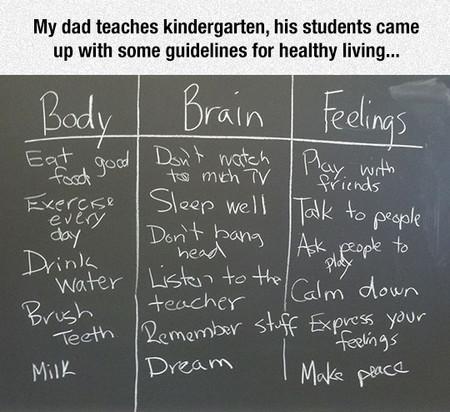 My dad teaches kindergarten, his students came
up with some guidelines for healthy living...
Body
Eat good
food
Exercise
every
day
Drink
Water
Brush
Teeth
Milk
Brain
Don't watch
to mch TV
Sleep well
Don't bang
head
Listen to the
teacher
Remember stuff
Dream
Feelings
Play with
friends
Talk to people
Ask people to
play
Calm down
Express your
feelings
Make peace